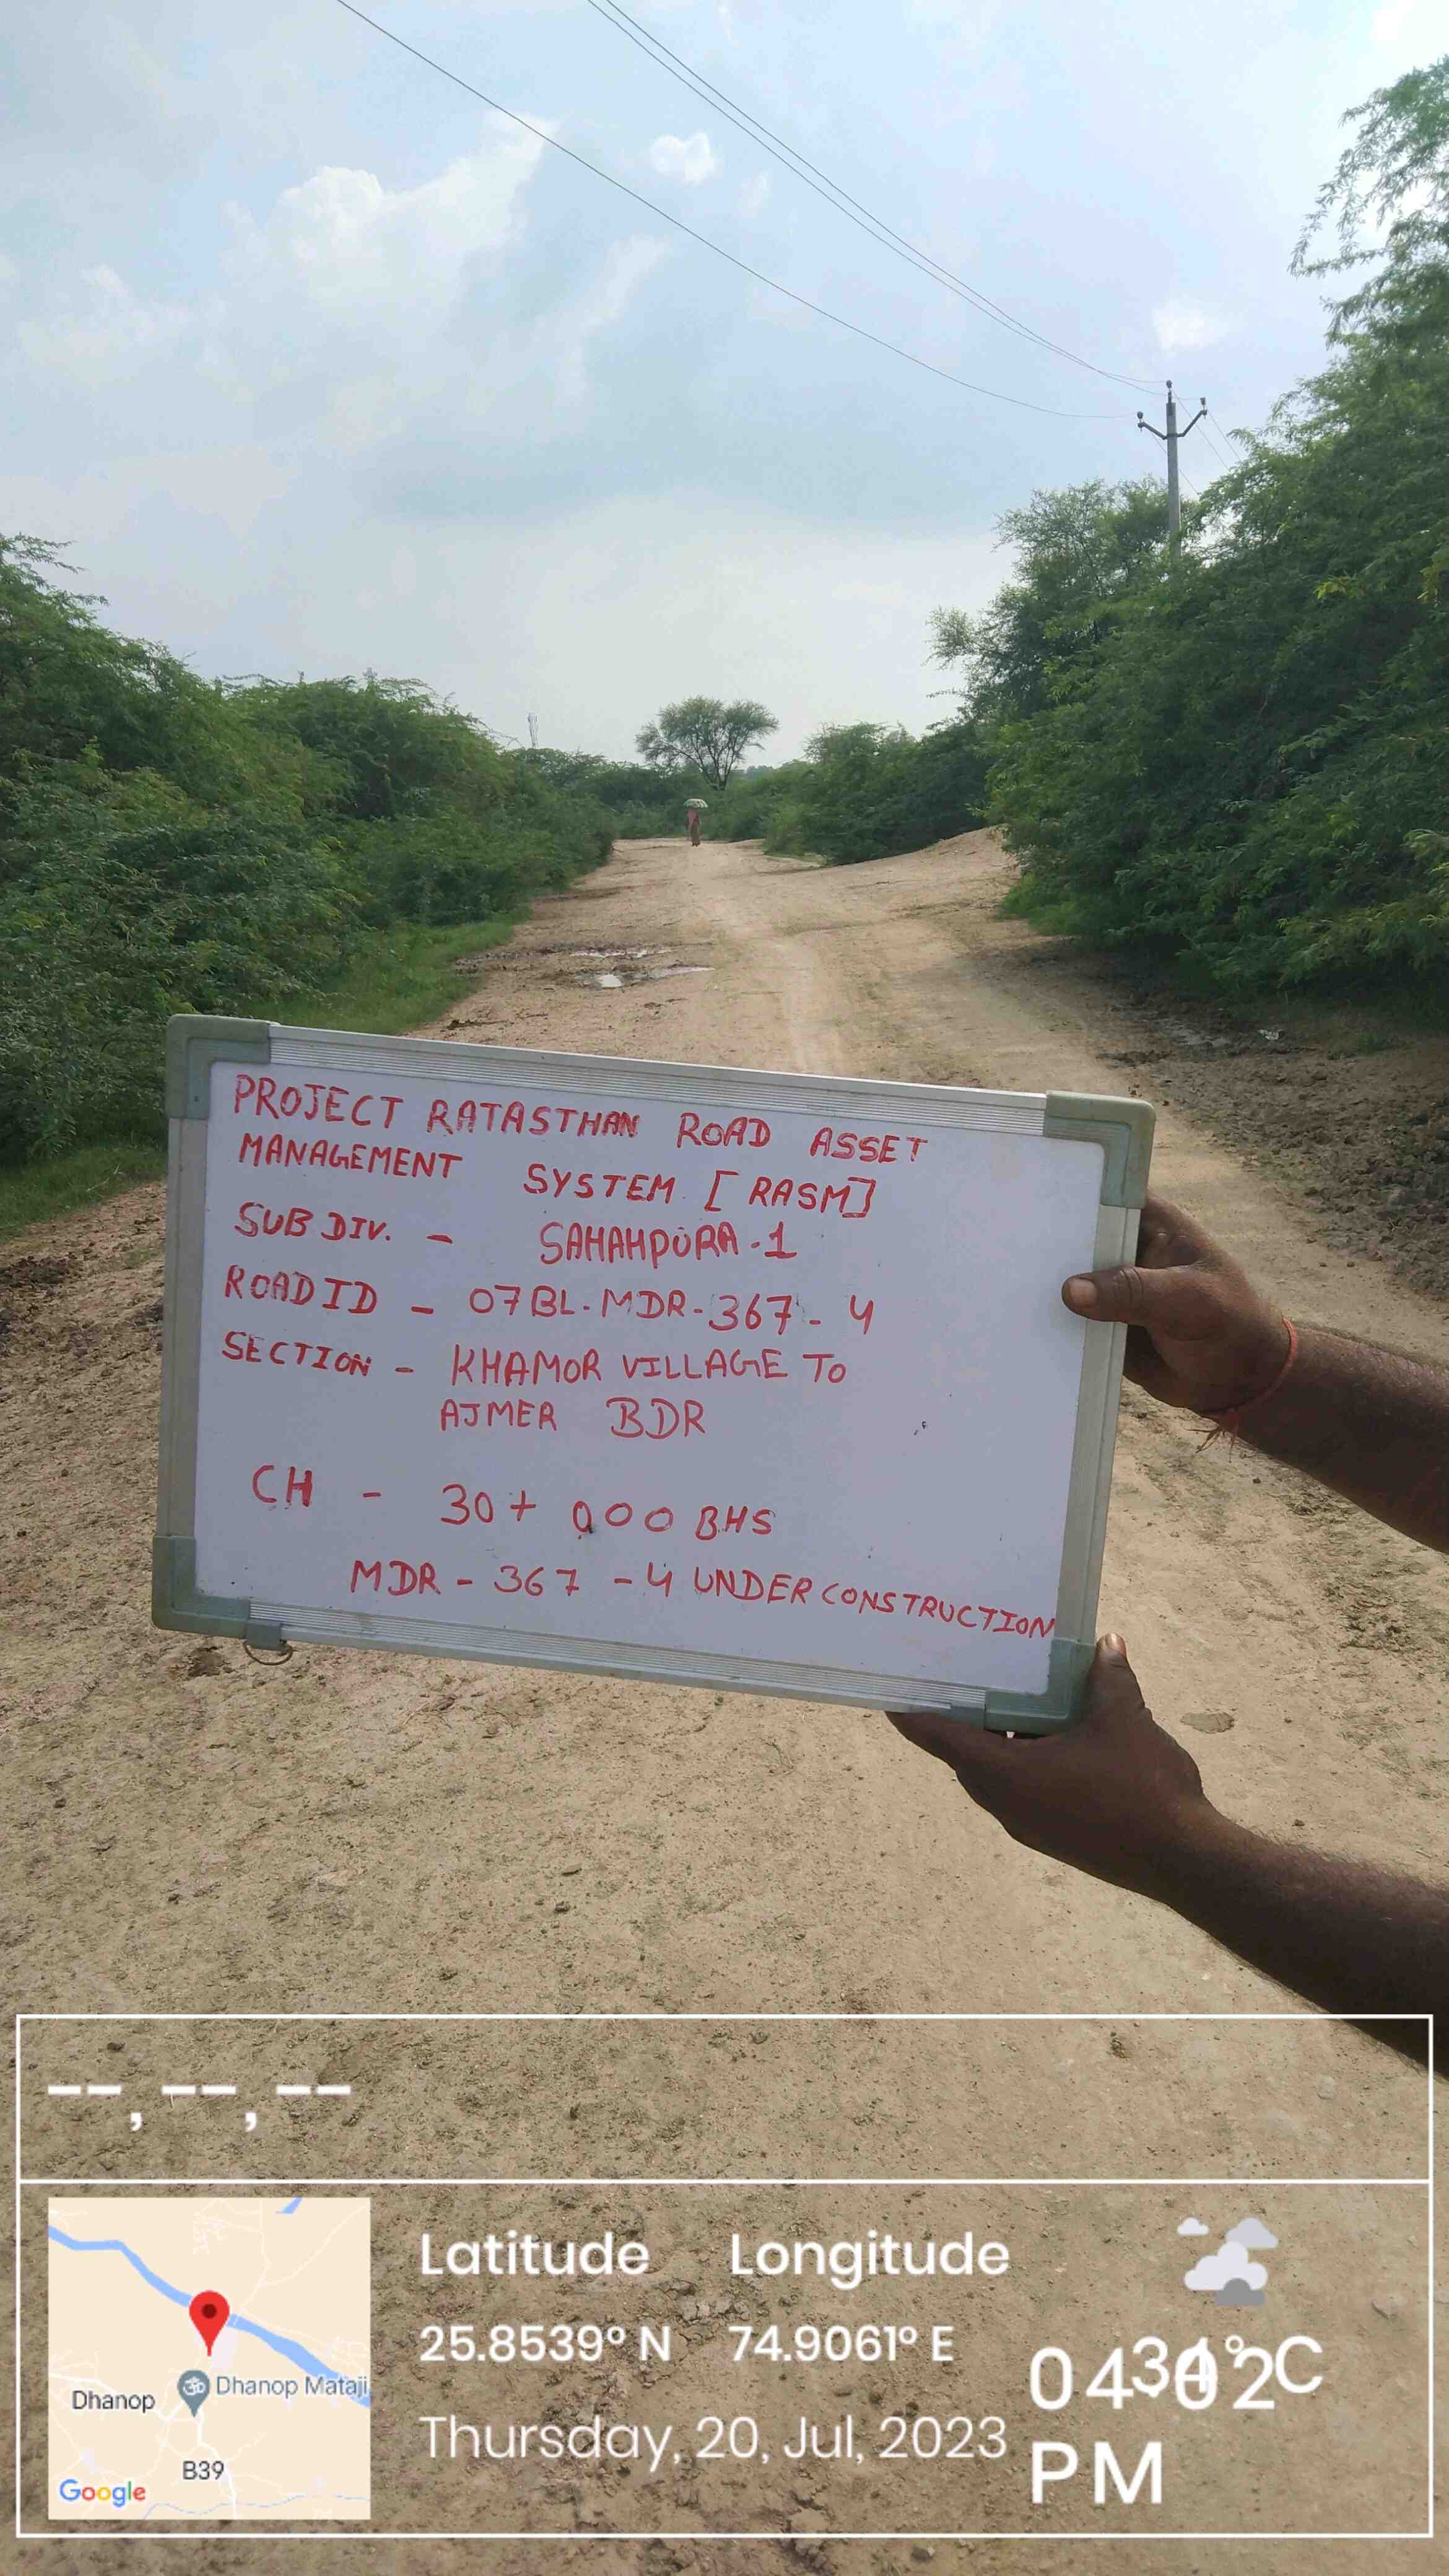 PROJECT RATASTHAN ROAD ASSET
MANAGEMENT SYSTEM [RASM]
SUB DIV. - SAHAHPURA-1
ROAD ID - 07BL-MDR-367-4
SECTION - KHAMOR VILLAGE TO
AJMER BDR
CH - 30+000 BHS
MDR-367-4 UNDER CONSTRUCTION
--,--,--
Latitude Longitude
25.8539° N 74.9061° E
Thursday, 20, Jul, 2023
PM
Dhanop Mataji
Dhanop
B39
Google